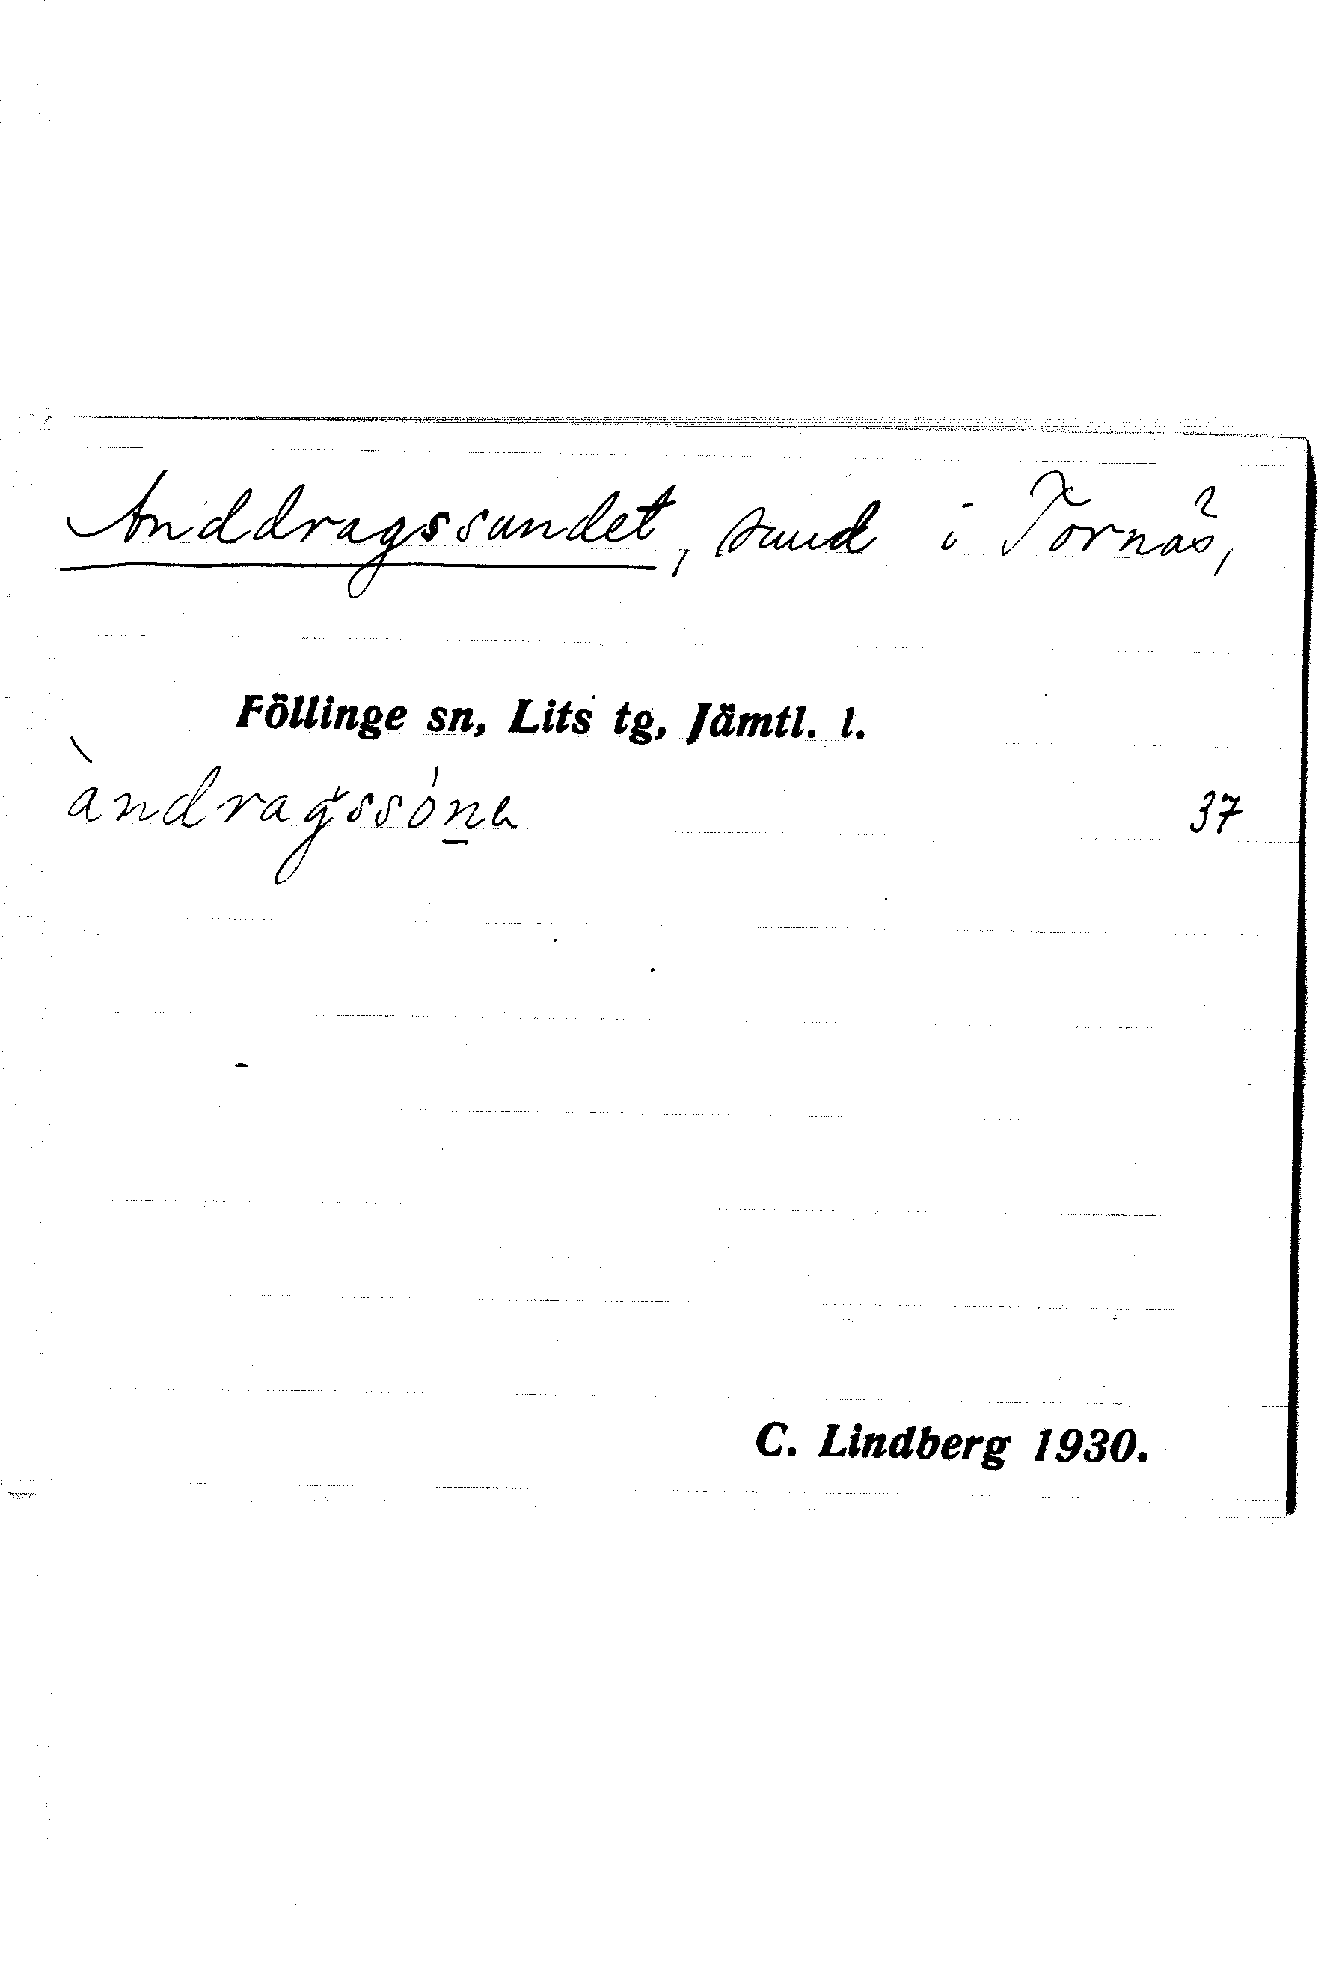 Anddragssundet, sund i Tornäs,
Föllinge sn, Lits tg, Jämtl. l.
àndragssóna 37
C. Lindberg 1930.